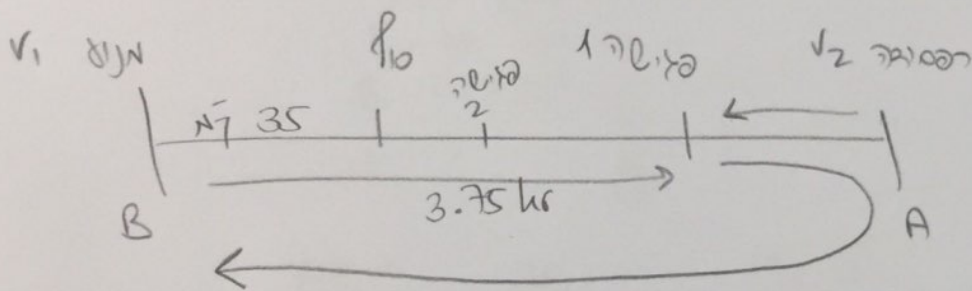 V₁ מנוע
סוף
פגישה 2
פגישה 1
V₂ רפסודה
35 ק"מ
3.75 hr
B
A